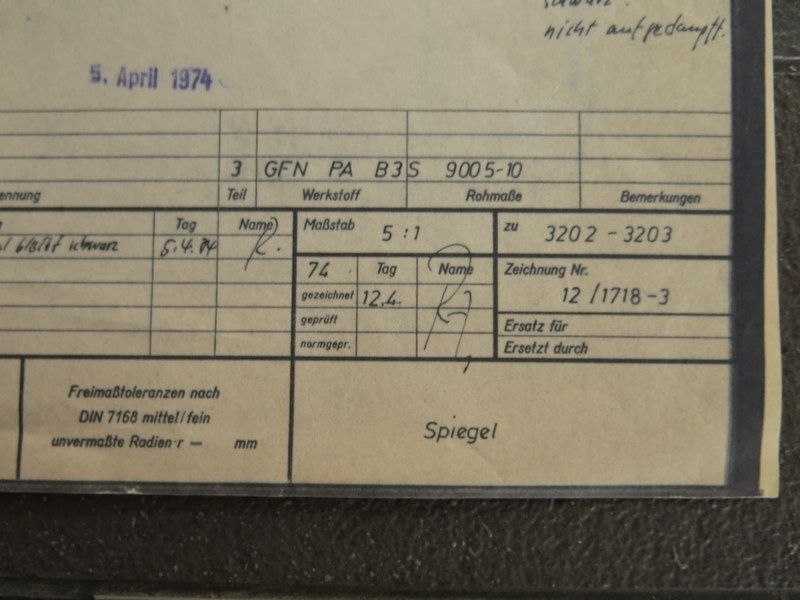 schwarz.
nicht aufgedampft.
5. April 1974
3 GFN PA B3S 9005-10
ennung Teil Werkstoff Rohmaße Bemerkungen
Tag Name
bleibt schwarz 5.4.74 R.
Maßstab 5:1
zu 3202-3203
74 Tag Name
gezeichnet 12.4.
geprüft
normgepr.
Zeichnung Nr.
12/1718-3
Ersatz für
Ersetzt durch
Freimaßtoleranzen nach
DIN 7168 mittel/fein
unvermaßte Radien r = mm
Spiegel